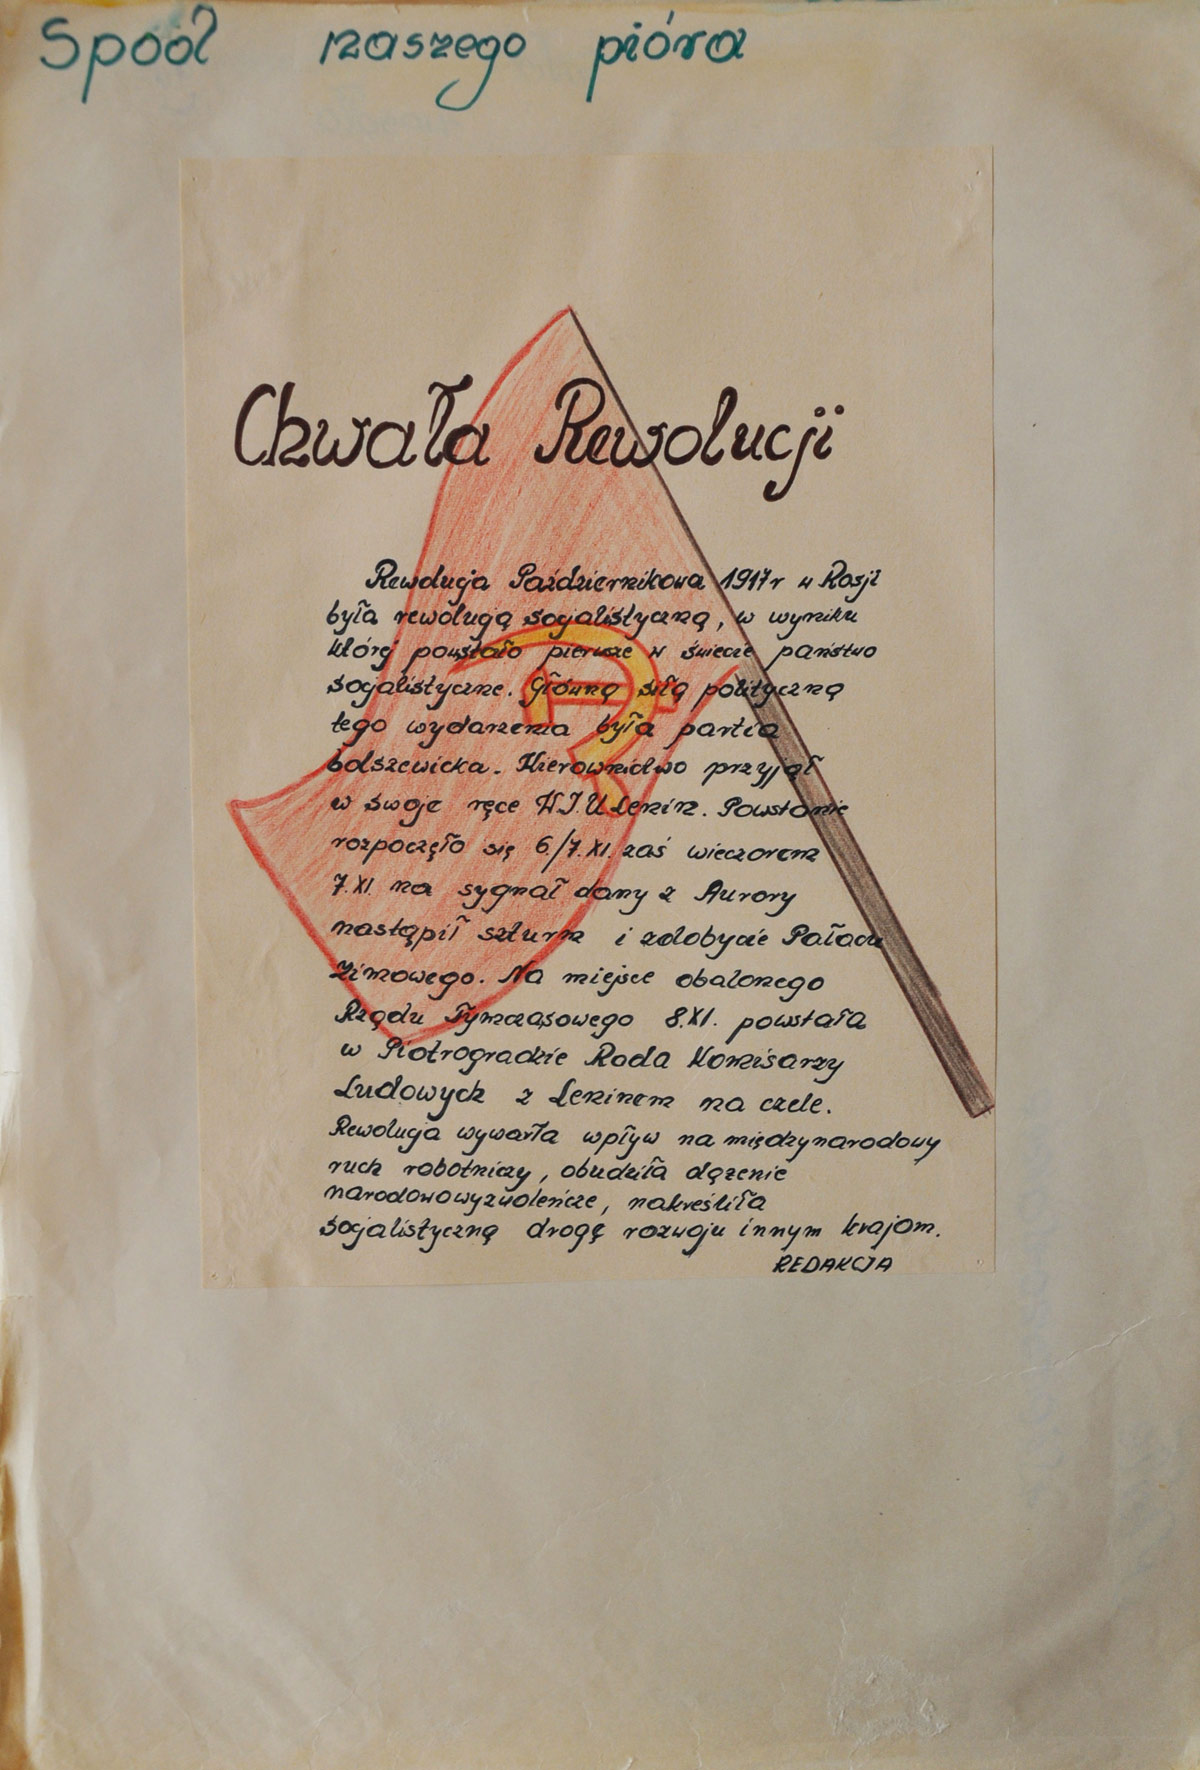 Spód naszego pióra
Chwała Rewolucji
Rewolucja Październikowa 1917r w Rosji
była rewolucją socjalistyczną, w wyniku
której powstało pierwsze w świecie państwo
socjalistyczne. Główną siłą polityczną
tego wydarzenia była partia
bolszewicka. Kierownictwo przyjął
w swoje ręce W.I.U Lenin. Powstanie
rozpoczęło się 6./7.XI. zaś wieczorem
7.XI. na sygnał dany z Aurory
nastąpił szturm i zdobycie Pałacu
Zimowego. Na miejsce obalonego
Rządu Tymczasowego 8.XI. powstała
w Piotrogradzie Rada Komisarzy
Ludowych z Leninem na czele.
Rewolucja wywarła wpływ na międzynarodowy
ruch robotniczy, obudziła dążenie
narodowowyzwoleńcze, nakreśliła
socjalistyczną drogę rozwoju innym krajom.
REDAKCJA